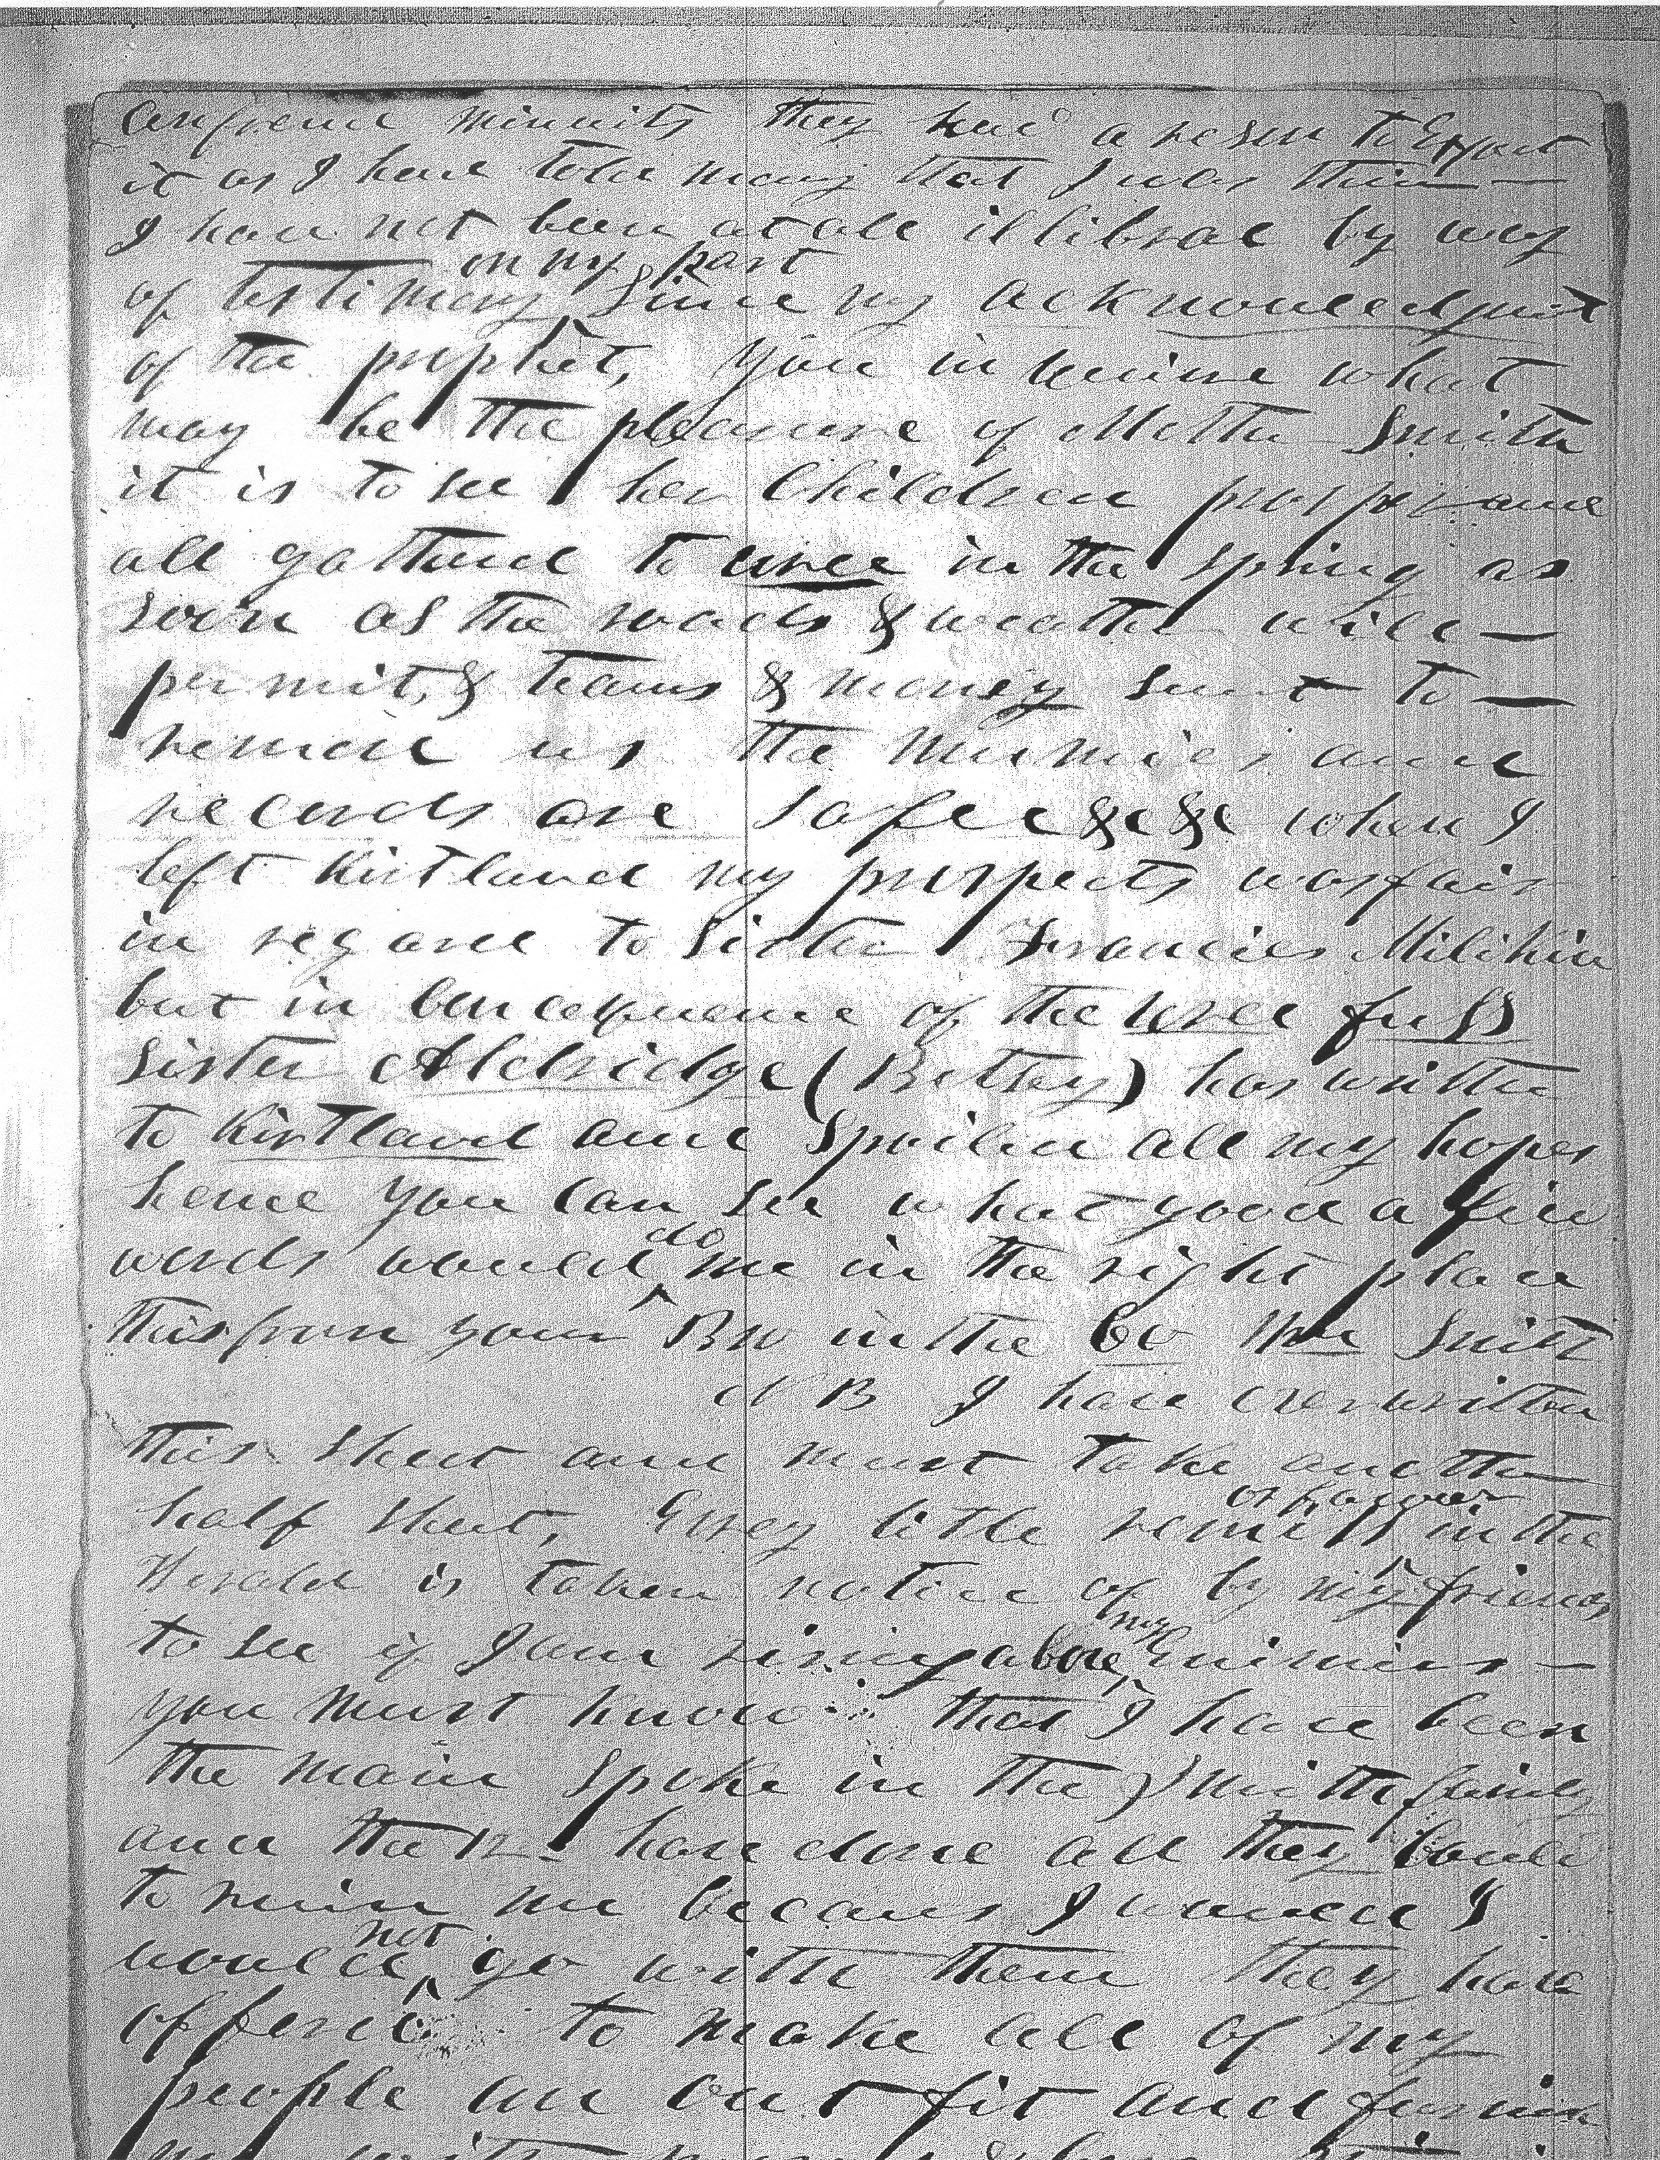 Conference minuits they had a reson to Expect
it as I have told many that I was thier —
I have not been at all illibral by way
on my part
of testimony since my acknowledgment
of the prophet, you in quire what
may be the pleasure of Mother Smith
it is to see her Children prosper and
all gathered to voree in the spring as
soon as the roads & weather will —
permit, & teams & money sent to —
remove us the Mumies and
records are safe &c &c when I
left Kirtland my prospects was fair
in regard to Sister Francies Milikin
but in Concequence of the voree fuss
Sister Aldridge (Betsey) has written
to Kirtland and Spoiled all my hopes
hence you can see what good a few
do
words would me in the right place
this from your Bro in the Co Wm Smith
N B I have overwritten
this sheet and must take another
half sheet, Evrey little remiss in the
Herald is taken notice of by my friends
my
to see if I am rising above Enimies —
you must know that I have been
the main spoke in the Smith family
and the 12 — have done all they Could
to ruin me becaus I
not
would go with them they have
offered to make all of my
people an out fit and furnish